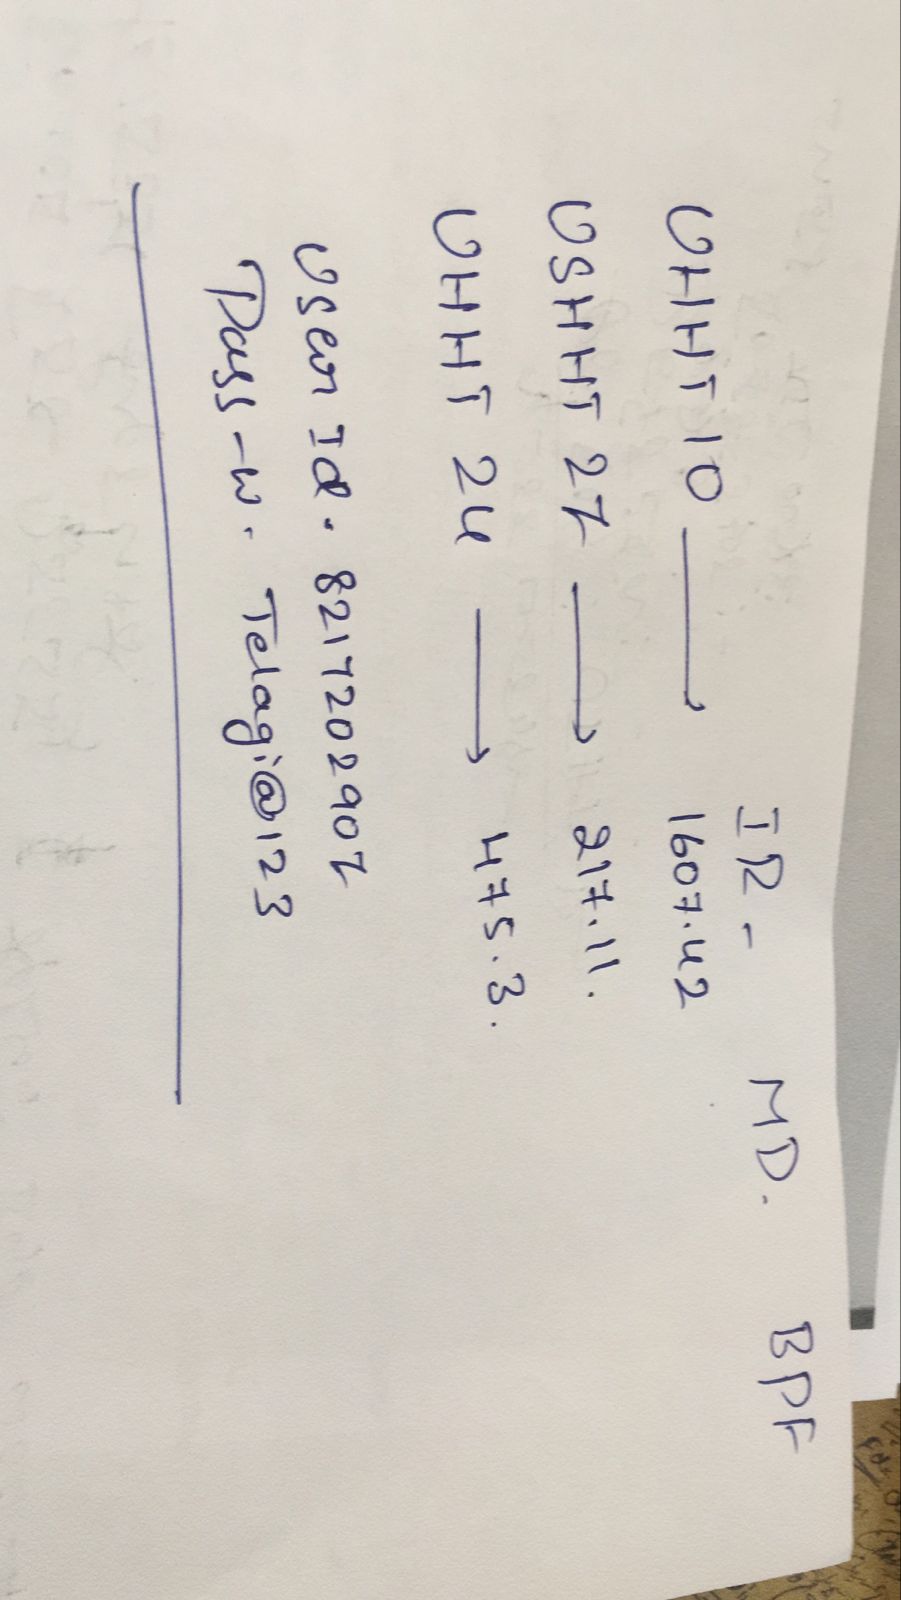 IR - MD. BPF
UHHT 10 → 1607.42
USHHT 27 → 217.11.
UHHT 24 → 475.3.
User Id. 8217202907
Pass-w. Telagi@123